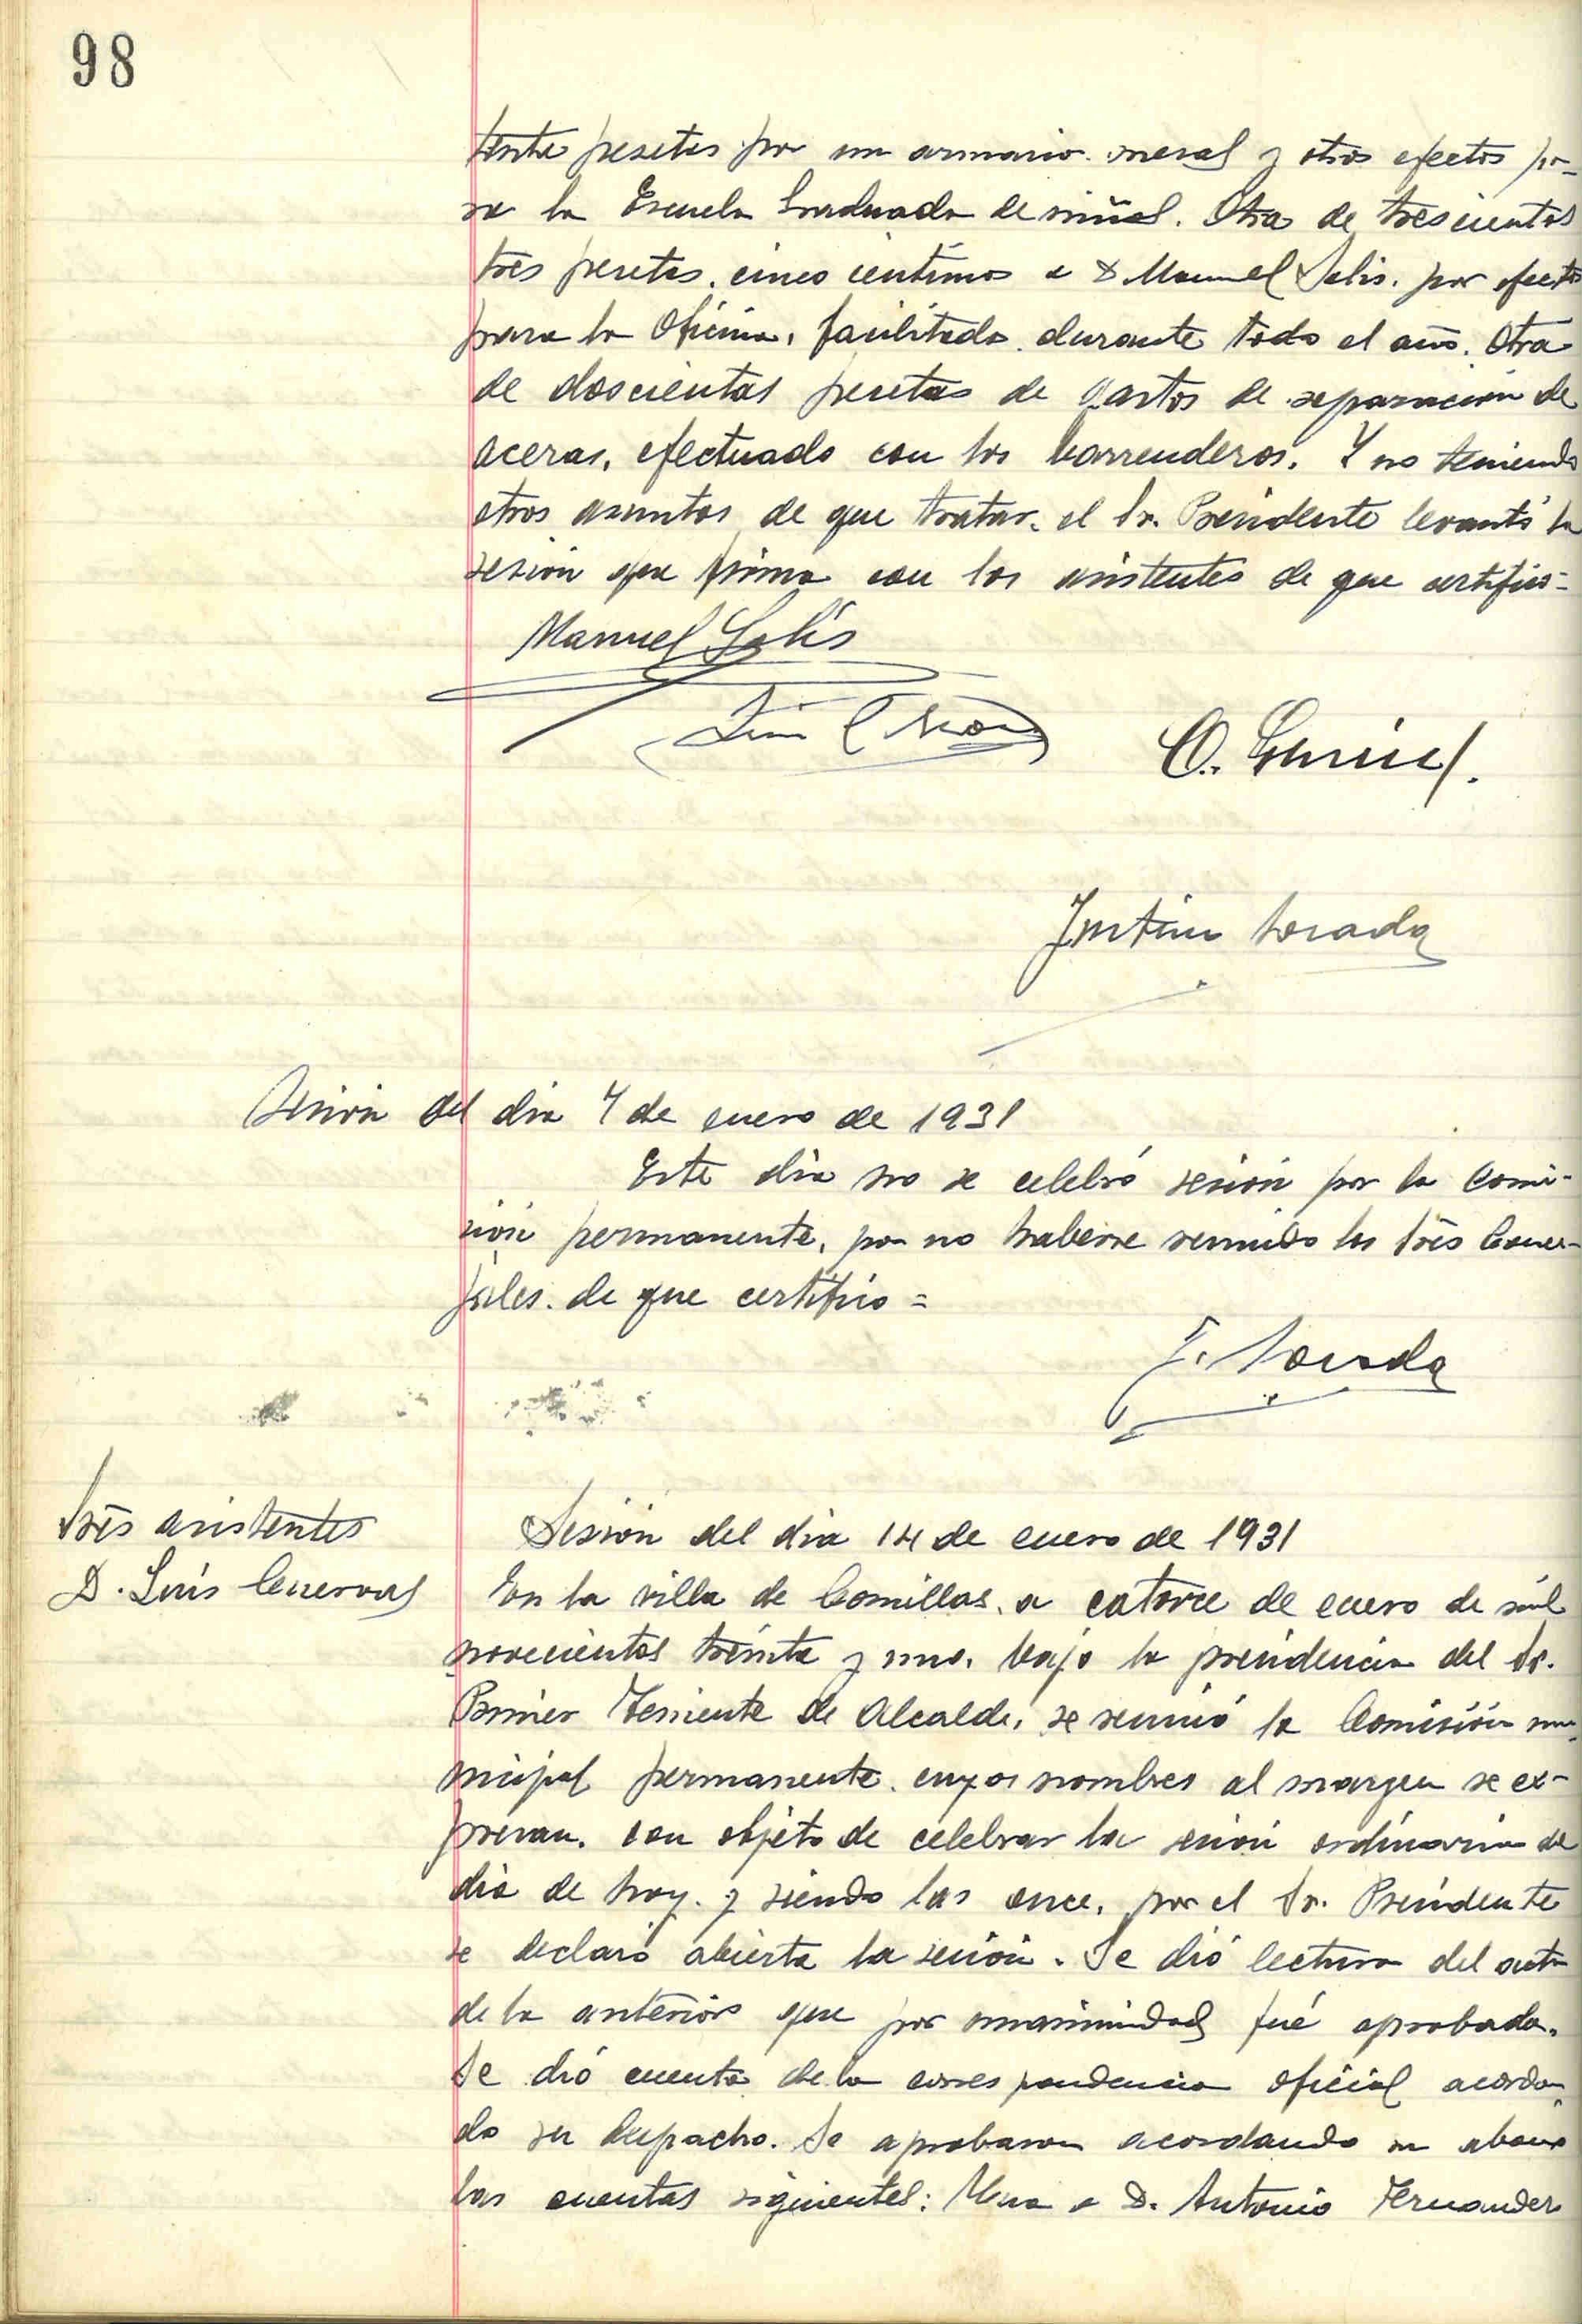 98
pesetas por un armario mesa y otros efectos pa-
ra la Escuela Graduada de niñas. Otra de trescientas
tres pesetas, cinco centimos a D Manuel Solis, por efectos
para la Oficina, facilitado durante todo el año. Otra
de doscientas pesetas de gastos de reparación de
aceras, efectuado con los barrenderos. Y no teniendo
otros asuntos de que tratar, el Sr. Presidente levantó la
sesión que firma con los asistentes de que certifico=
Manuel Solis
Sesión del dia 7 de enero de 1931
Este dia no se celebró sesión por la Comi-
sión permanente, por no haberse reunido los tres Conce-
jales. de que certifico =
Tres asistentes
D. Luis Cuervas
Sesión del dia 14 de enero de 1931
En la villa de Comillas, a catorce de enero de mil
novecientos treinta y uno, bajo la presidencia del Sr.
Primer Teniente de Alcalde, se reunió la Comisión mu-
nicipal permanente, cuyos nombres al margen se ex-
presan, con objeto de celebrar la sesión ordinaria del
dia de hoy. y siendo las once, por el Sr. Presidente
se declaró abierta la sesión. Se dió lectura del acta
de la anterior que por unanimidad fué aprobada.
Se dió cuenta de la correspondencia oficial acordan-
do su despacho. Se aprobaron acordando su abono
las cuentas siguientes: Una a D. Antonio Fernandez